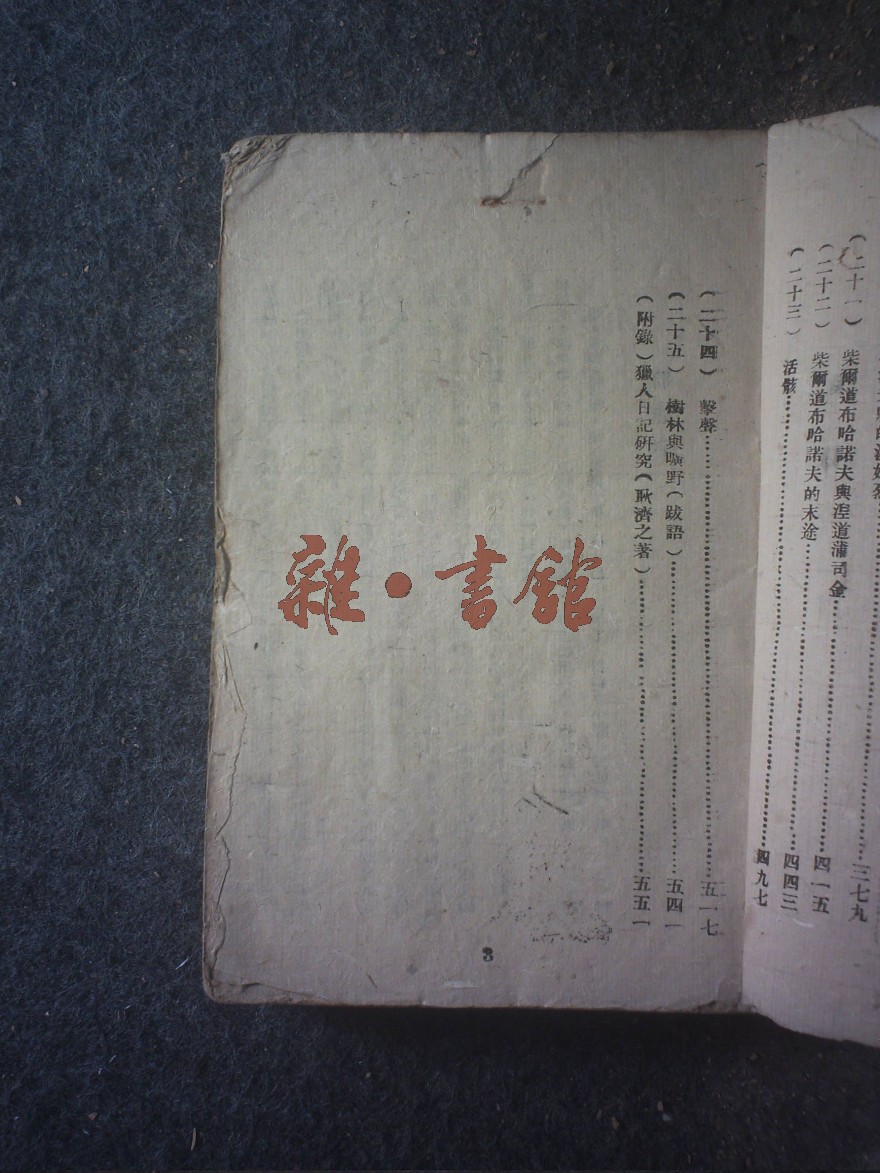 三七九
(二十一) 柴爾道布哈諾夫與湼道蒲司金……四一五
(二十二) 柴爾道布哈諾夫的末途……四四三
(二十三) 活骸……四九七
(二十四) 擊聲……五一七
(二十五) 樹林與曠野(跋語)……五四一
(附錄)獵人日記研究(耿濟之著)……五五一
3
雜·書館